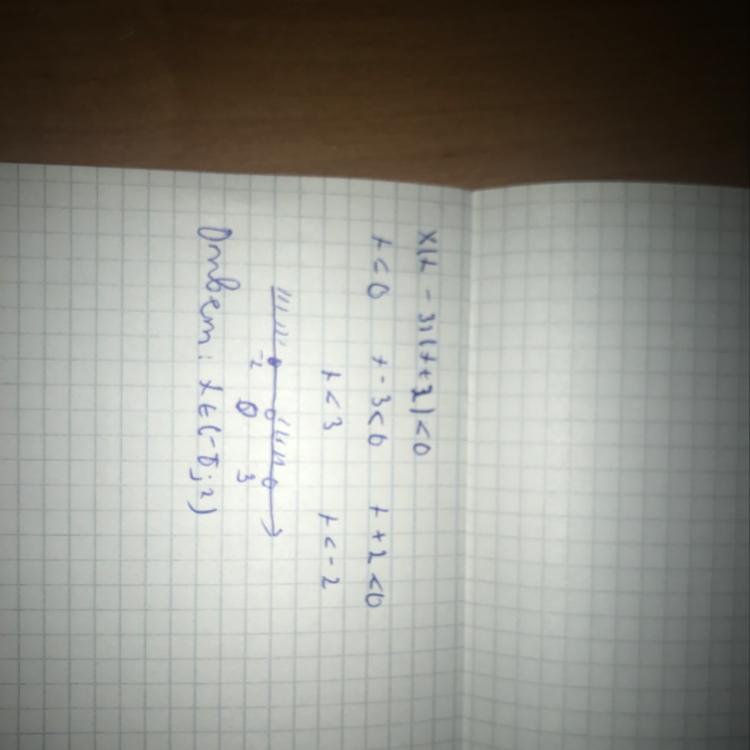 x(x - 3)(x+2)<0
x<0 x-3<0 x+2<0
x<3 x<-2
-2 0 3
Ответ: x∈(-